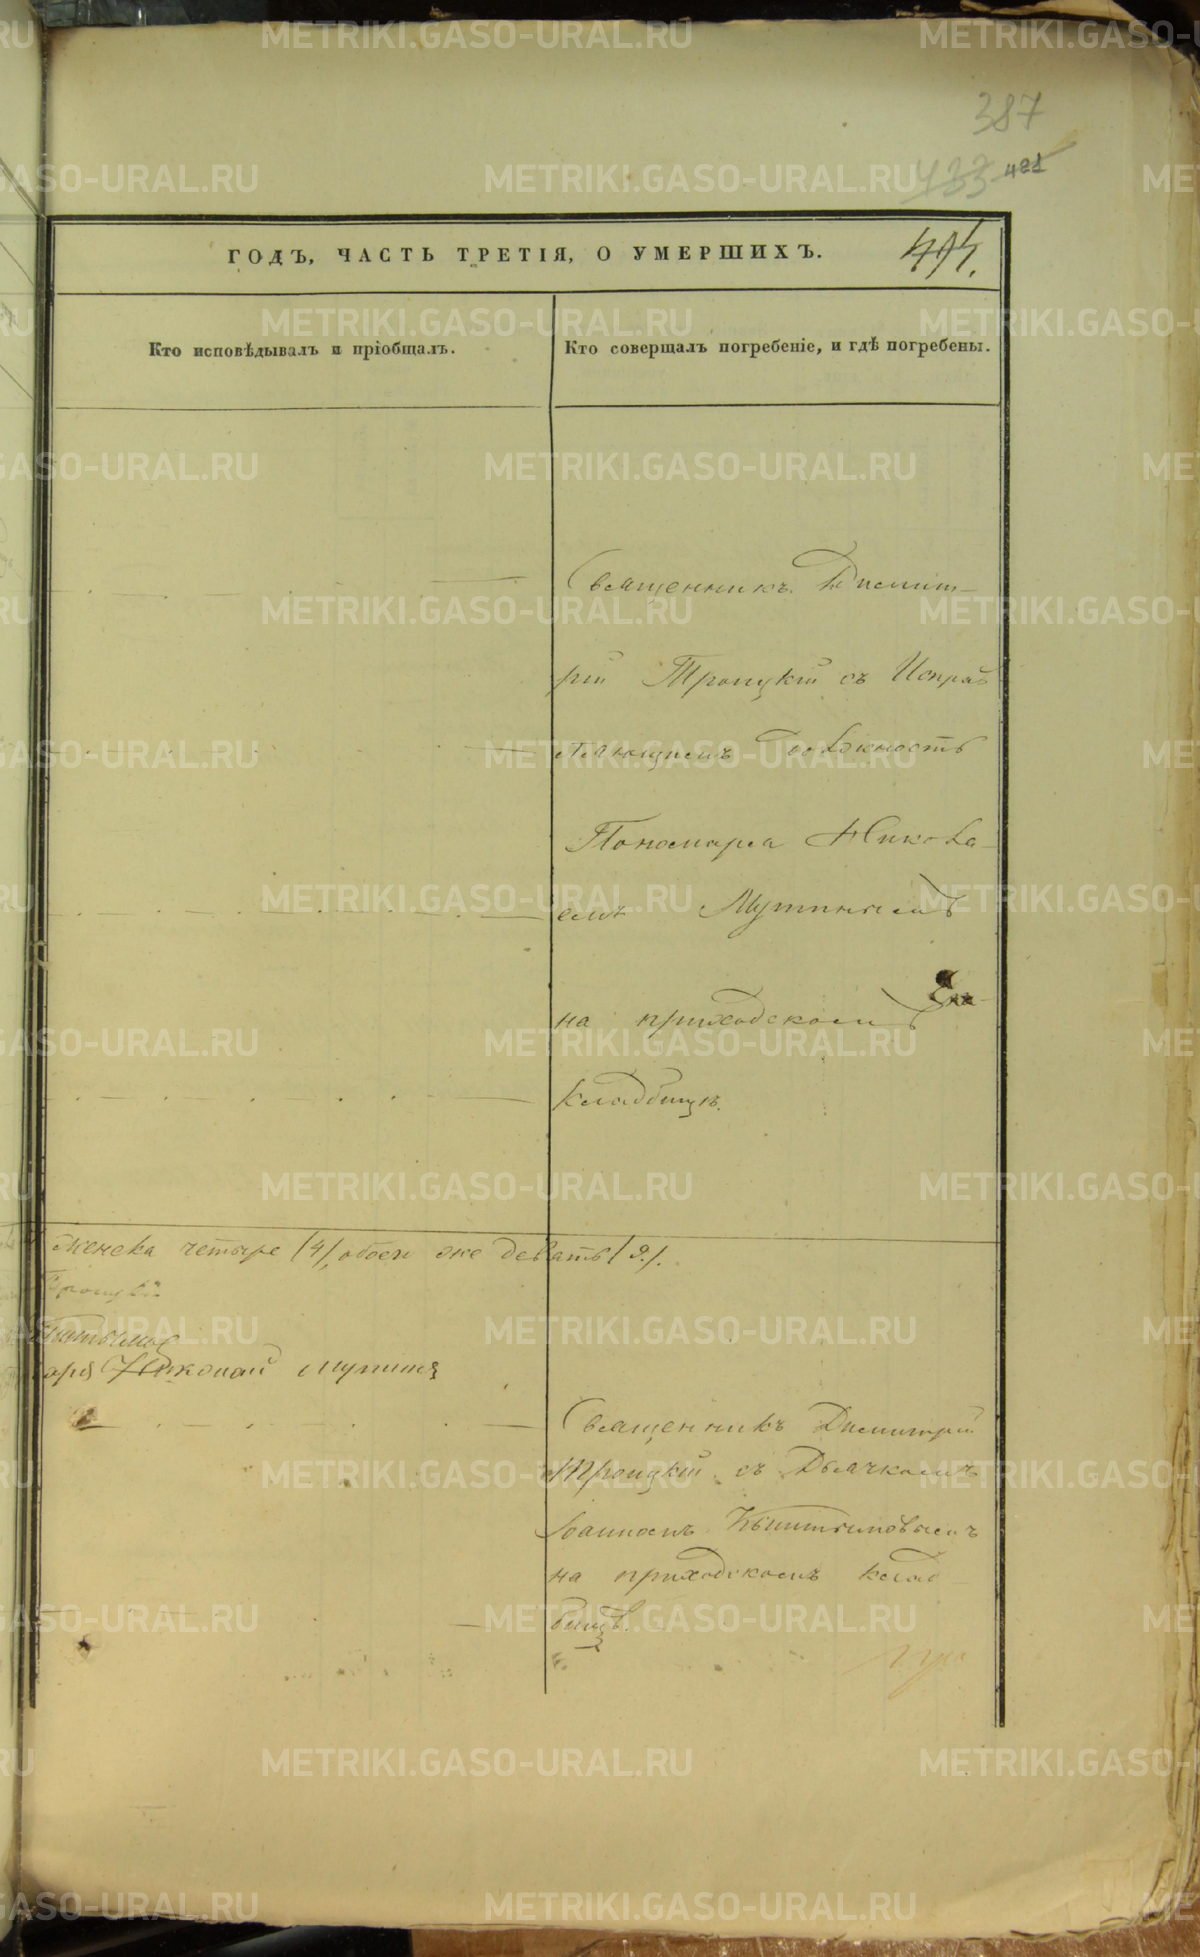 387
433 421
ГОДЪ, ЧАСТЬ ТРЕТІЯ, О УМЕРШИХЪ.
Кто исповѣдывалъ и пріобщалъ.
Кто совершалъ погребеніе, и гдѣ погребены.
Священникъ Димит-
рій Троицкій съ Исправ
ляющимъ должность
Пономаря Никола-
емъ Мутинымъ
на приходскомъ
кладбищѣ.
женска четыре /4/, обоего же девять /9/.
Троицкій
аря Николай Мутинъ
Священникъ Димитрій
Троицкій съ Дьячкомъ
Іоанномъ Кыштымовымъ
на приходскомъ клад
бищѣ.
METRIKI.GASO-URAL.RU